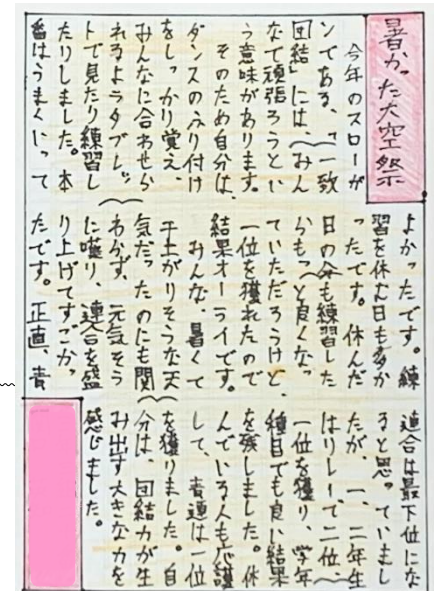 暑かった大空祭
今年のスローガ
ンである、「一致
団結」には、みん
なで頑張ろうとい
う意味があります。
そのため自分は、
ダンスのふり付け
をしっかり覚え、
みんなに合わせら
れるようタブレッ
トで見たり練習し
たりしました。本
番はうまくいって
よかったです。練
習を休む日も多か
ったです。休んだ
日の分も練習した
らもっと良くなっ
ていただろうけど、
一位を獲れたので
結果オーライです。
みんな、暑くて
干上がりそうな天
気だったのにも関
わらず、元気そう
に り、連合を盛
り上げてすごかっ
たです。正直、青
連合は最下位にな
ると思っていまし
たが、一、二年生
はリレーで二位、
一位を獲り、学年
種目でも良い結果
を残しました。休
んでいる人も応援
して、青連は一位
を獲りました。自
分は、団結力が生
み出す大きな力を
感じました。